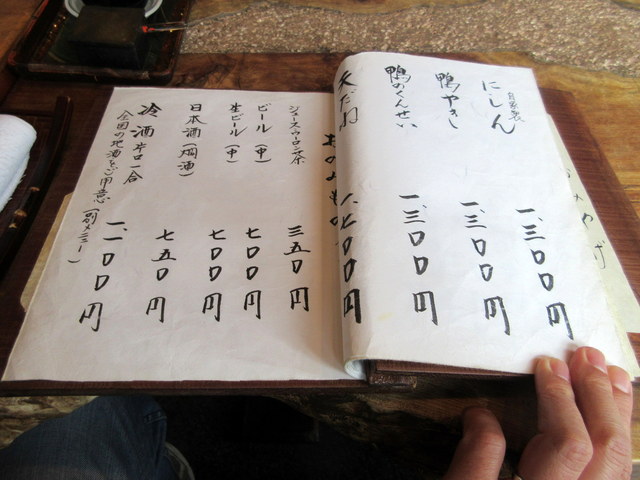 自家製
にしん 一、三〇〇円
鴨やき 一、三〇〇円
鴨のくんせい 一、三〇〇円
天だね 一、七〇〇円
おのみもの
ジュース・ウーロン茶 三五〇円
ビール（中） 七〇〇円
生ビール（中） 七〇〇円
日本酒（燗酒） 七五〇円
冷酒 辛口一合 一、一〇〇円
全国の地酒もご用意（別メニュー）